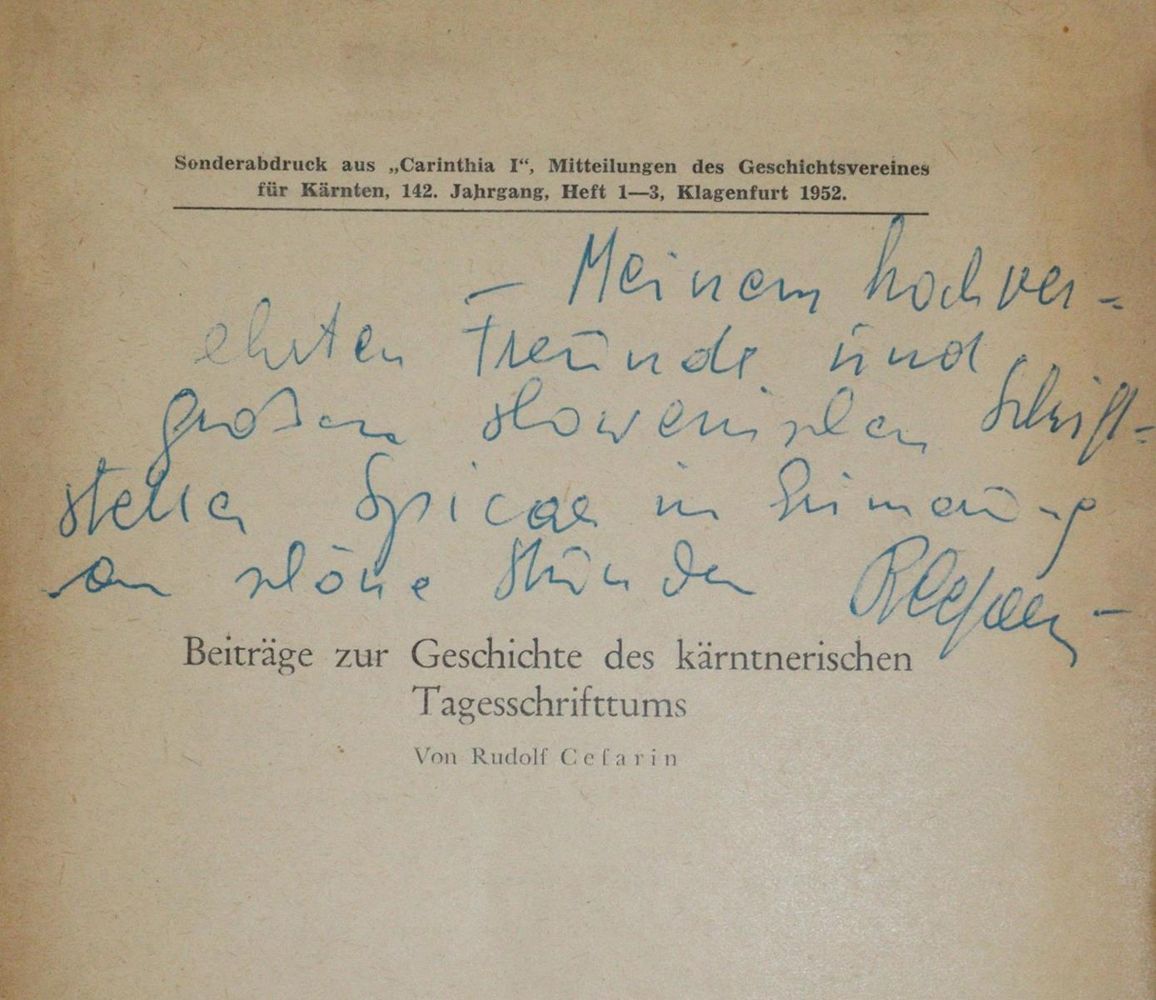 Sonderabdruck aus „Carinthia I“, Mitteilungen des Geschichtsvereines
für Kärnten, 142. Jahrgang, Heft 1—3, Klagenfurt 1952.
— Meinem hochver-
ehrten Freunde und
großen slowenischen Schrift-
steller in Erinnerung
an schöne Stunden
Beiträge zur Geschichte des kärntnerischen
Tagesschrifttums
Von Rudolf Cefarin